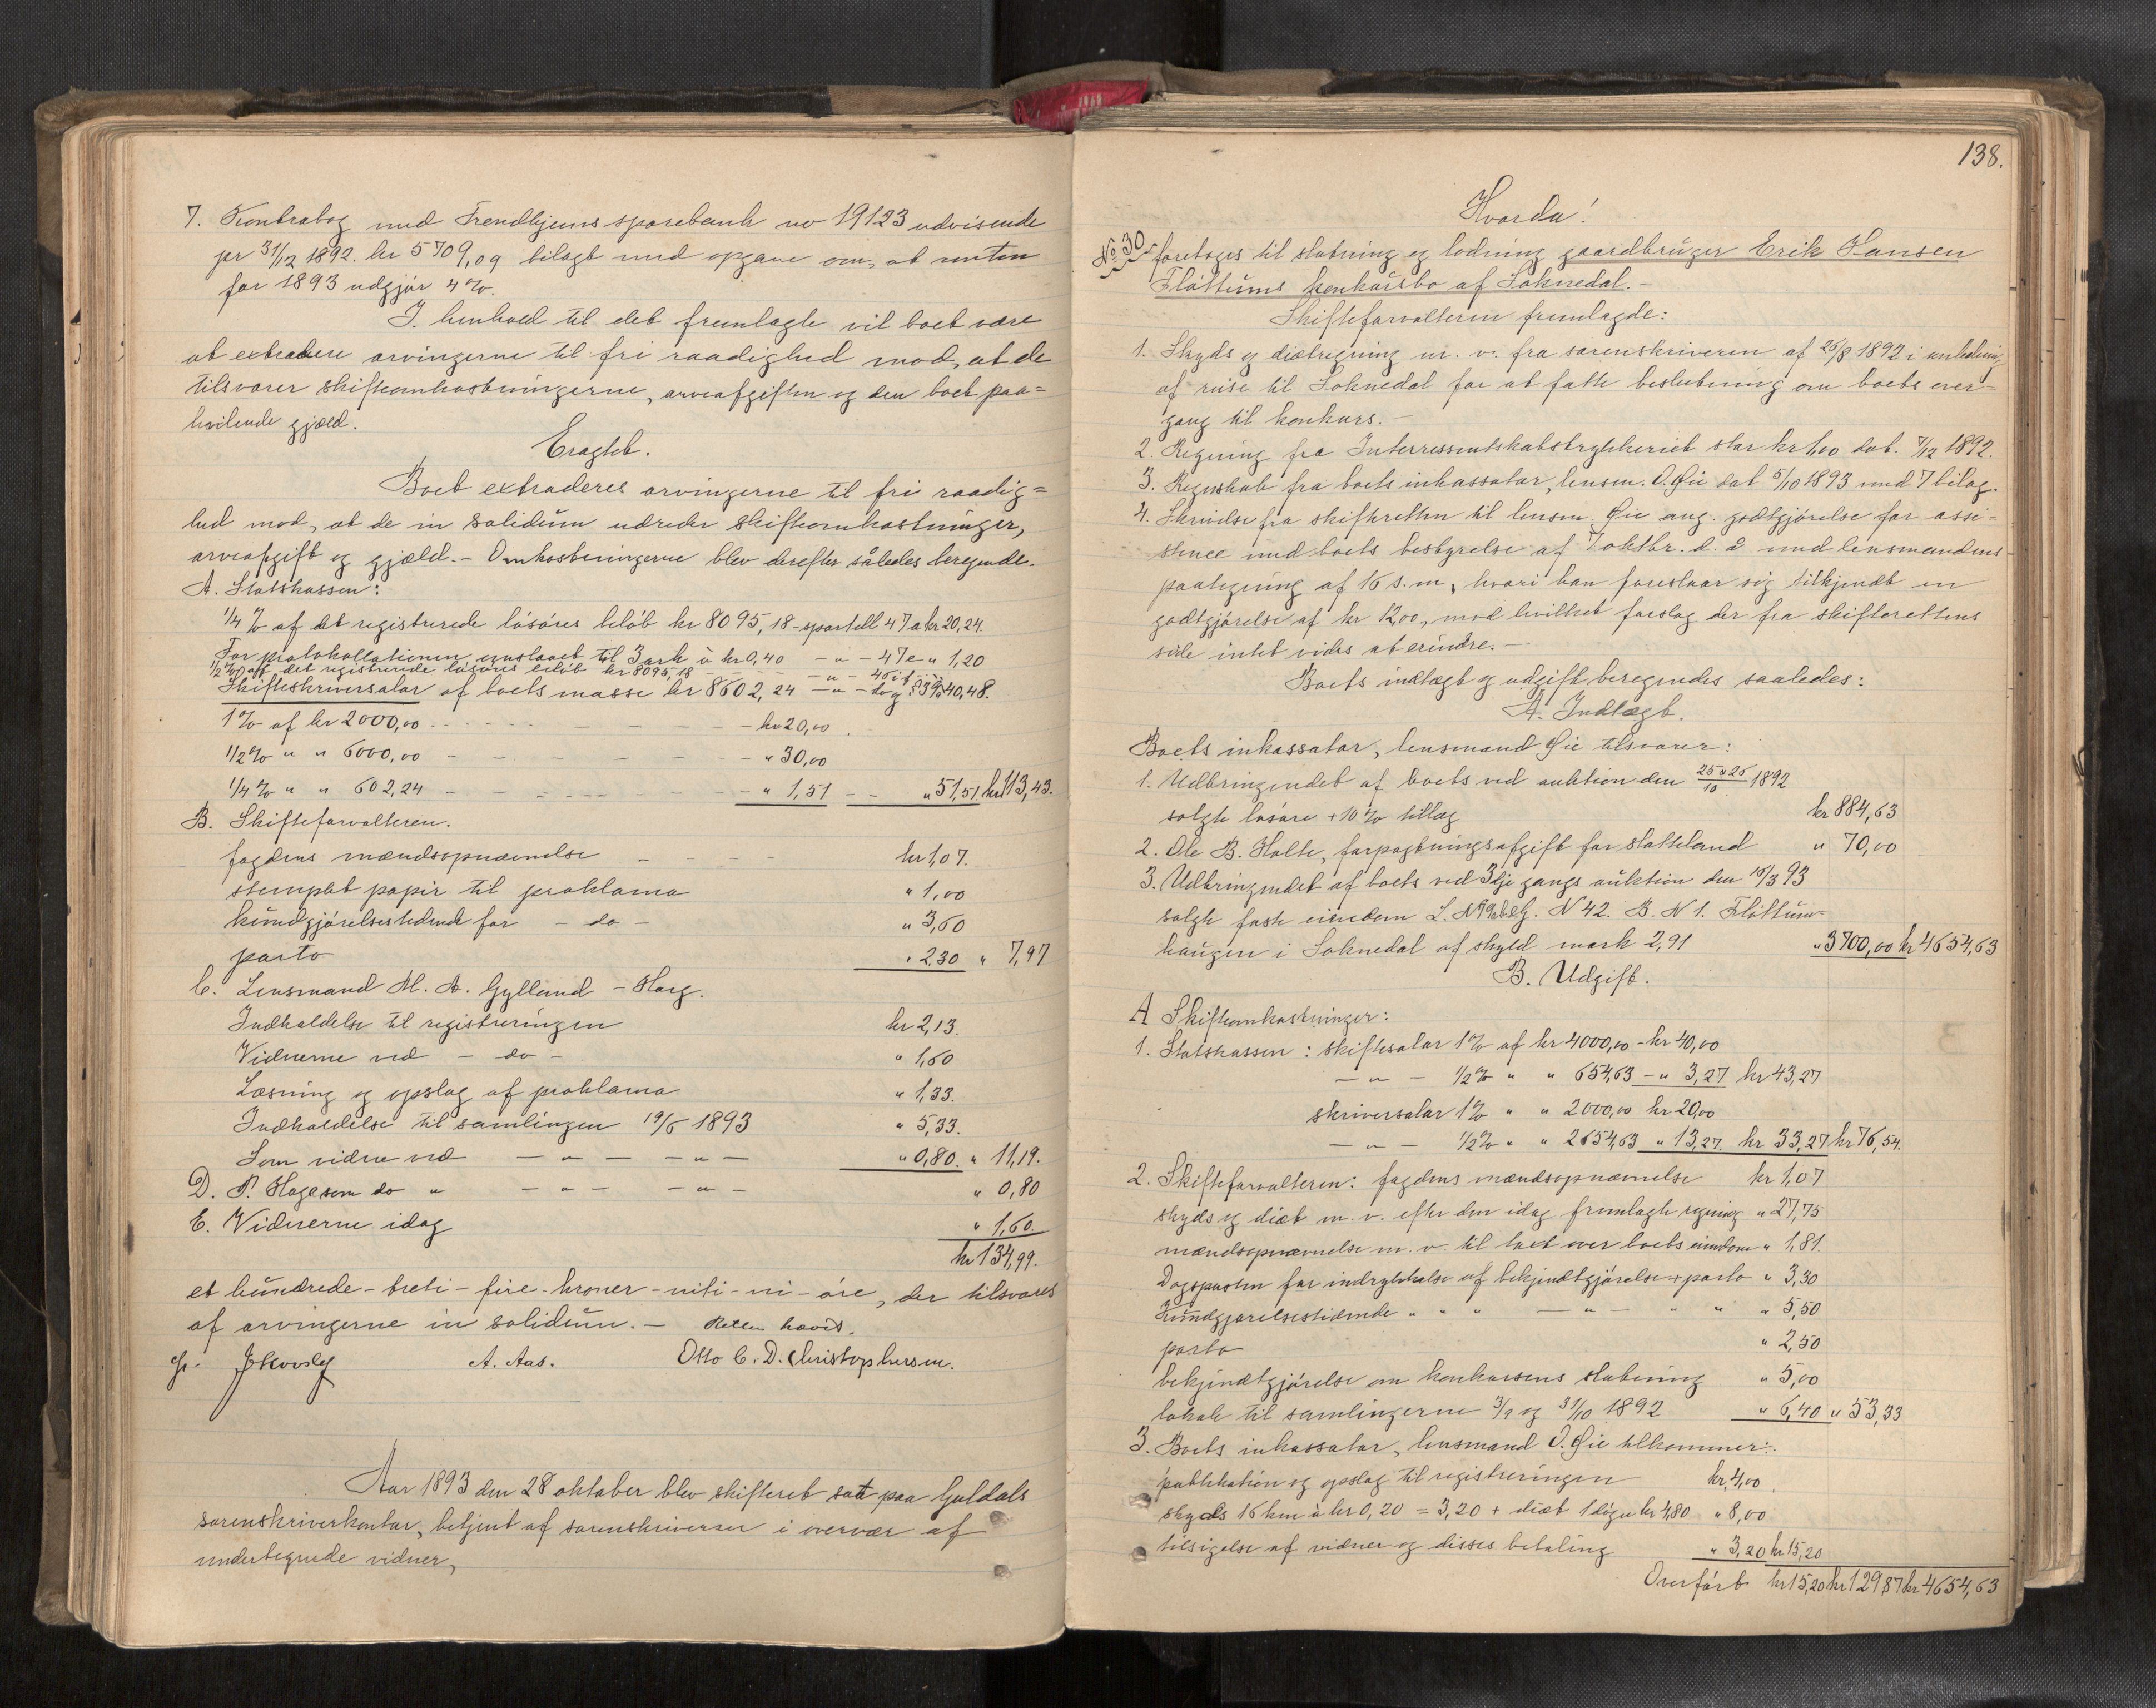 7. Kontrabog med Trondhjems sparebank no 19123 udvisende
pr 31/12 1892. kr 5709,09 bilagt med opgave om, at renten
for 1893 udgjør 4%.
I henhold til det fremlagte vil boet være
at extradere arvingerne til fri raadighed mod, at de
tilsvarer skifteomkostningerne, arveafgiften og den boet paa=
hvilende gjæld.
Eragtet.
Boet extraderes arvingerne til fri raadig=
hed mod, at de in solidum udreder skifteomkostninger,
arveafgift og gjæld. - Omkostningerne blev derefter således beregnede.
A. Statskassen:
1/4 % af det registrerede løsøres beløb kr 8095,18 - sportell 47a kr 20,24.
For protokollationen anslaaet til 3 ark à kr 0,40 - " - 47e " 1,20
1/2 % af det registrerede løsøres beløb kr 8095,18 - " -
Skifteskriversalar af boets masse kr 8602,24 - " - 40,48.
1% af kr 2000,00 - - - kr 20,00
1/2% " " 6000,00 - - - " 30,00
1/4% " " 602,24 - - - " 1,51 - - " 51,51 kr 113,43.
B. Skifteforvalteren.
fogdens mændsopnævnelse - - - kr 1,07.
stemplet papir til proklama " 1,00
kundgjørelsestidende for - do - " 3,60
porto " 2,30 " 7,97
C. Lensmand M. A. Gylland - Horg.
Indkaldelse til registreringen kr 2,13.
Vidnerne ved - do - " 1,60
Læsning og opslag af proklama " 1,33.
Indkaldelse til samlingen 19/5 1893 " 5,33.
Som vidne ved - " - - " - " 0,80. " 11,19.
D. P. Hage som do " - " - - " - " 0,80
E. Vidnerne idag " 1,60.
kr 134,99.
et hundrede - treti - fire - kroner - niti - ni - øre, der tilsvares
af arvingerne in solidum. - Retten hævet.
A. Aas. Otto C. D. Christophersen.
Aar 1893 den 28 oktober blev skifteret sat paa Guldals
sorenskriverkontor, betjent af sorenskriveren i overvær af
undertegnede vidner,
138.
Hvorda!
No 30 foretoges til slutning og lodning gaardbruger Erik Hansen
Fløttums konkursbo af Soknedal. -
Skifteforvalteren fremlagde:
1. Skyds og diætregning m. v. fra sorenskriveren af 26/8 1892 i anledning
af reise til Soknedal for at fatte beslutning om boets over=
gang til konkurs. -
2. Regning fra Interressentskabstrykkeriet stor kr 1,00 dat. 7/12 1892.
3. Regnskab fra boets inkassator, lensm. O. Øie dat 5/10 1893 med 7 bilag.
4. Skrivelse fra skifteretten til lensm. Øie ang. godtgjørelse for assi=
stence med boets bestyrelse af 7 oktbr. d. å. med lensmandens
paategning af 16 s. m., hvori han foreslaar sig tilkjendt en
godtgjørelse af kr 12,00, mod hvilket forslag der fra skifterettens
side intet vides at erindre. -
Boets indtægt og udgift beregnedes saaledes:
A. Indtægt.
Boets inkassator, lensmand Øie tilsvarer:
1. Udbringendet af boets ved auktion den 25 & 26/10 1892
solgte løsøre + 10% tillæg kr 884,63
2. Ole B. Holte, forpagtningsafgift for slotteland " 70,00
3. Udbringendet af boets ved 3dje gangs auktion den 16/3 93
solgte faste eiendom G. N 42. B. N 1. Fløttum=
haugen i Soknedal af skyld mark 2,91 " 3700,00 kr 4654,63
B. Udgift.
A Skifteomkostninger:
1. Statskassen: skiftesalar 1% af kr 4000,00 - kr 40,00
- " - 1/2% " " 654,63 - " 3,27 kr 43,27
skriversalar 1% " " 2000,00 kr 20,00
- " - 1/2% " " 2654,63 " 13,27 kr 33,27 kr 76,54.
2. Skifteforvalteren: fogdens mændsopnævnelse kr 1,07
skyds og diæt m. v. efter den idag fremlagte regning " 27,75
mændsopnævnelse m. v. til taxt over boets eiendom " 1,81.
Dagsposten for indrykkelse af bekjendtgjørelse + porto " 3,30
Kundgjørelsestidende " " " - " - " " " 5,50
porto " 2,50
bekjendtgjørelse om konkursens slutning " 5,00
lokale til samlingerne 3/9 og 31/10 1892 " 6,40 " 53,33
3. Boets inkassator, lensmand O. Øie tilkommer:
publikation og opslag til registreringen kr 4,00
skyds 16 km à kr 0,20 = 3,20 + diæt 1 døgn kr 4,80 " 8,00
tilsigelse af vidner og disses betaling " 3,20 kr 15,20
Overført kr 15,20 kr 129,87 kr 4654,63